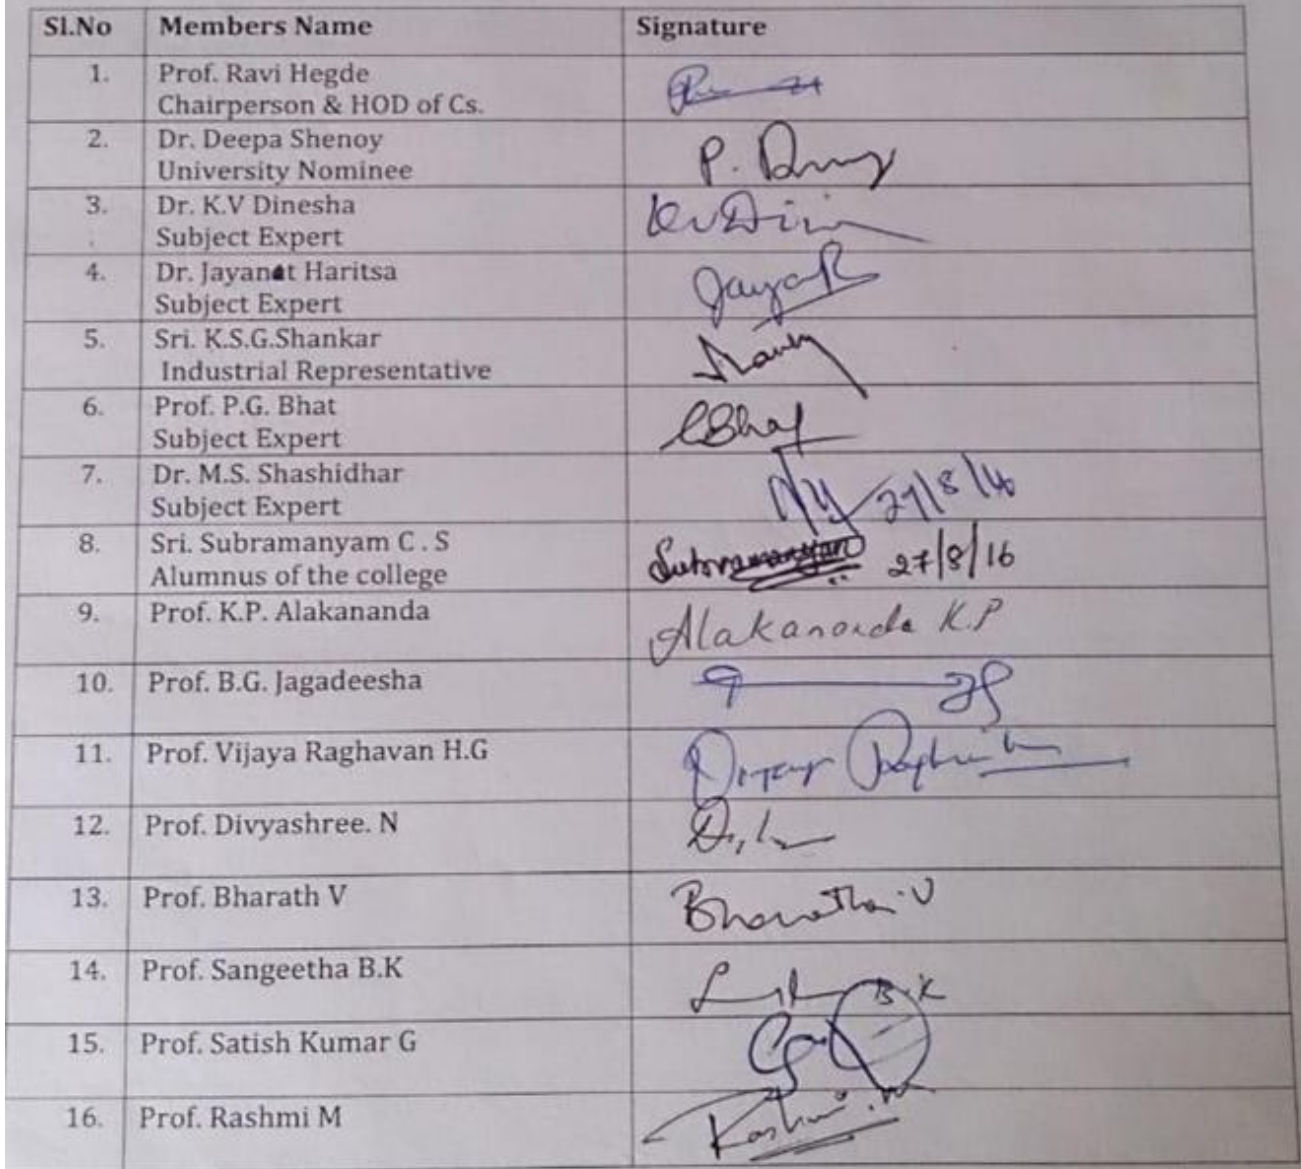 Sl.No Members Name Signature
1. Prof. Ravi Hegde
Chairperson & HOD of Cs.
2. Dr. Deepa Shenoy
University Nominee
P.
3. Dr. K.V Dinesha
Subject Expert
4. Dr. Jayanat Haritsa
Subject Expert
5. Sri. K.S.G.Shankar
Industrial Representative
6. Prof. P.G. Bhat
Subject Expert
7. Dr. M.S. Shashidhar
Subject Expert
27/8/16
8. Sri. Subramanyam C . S
Alumnus of the college
Subramanyam 27/8/16
9. Prof. K.P. Alakananda
Alakananda K.P
10. Prof. B.G. Jagadeesha
11. Prof. Vijaya Raghavan H.G
12. Prof. Divyashree. N
13. Prof. Bharath V
Bharatha.V
14. Prof. Sangeetha B.K
B.K
15. Prof. Satish Kumar G
16. Prof. Rashmi M
Rashmi.M